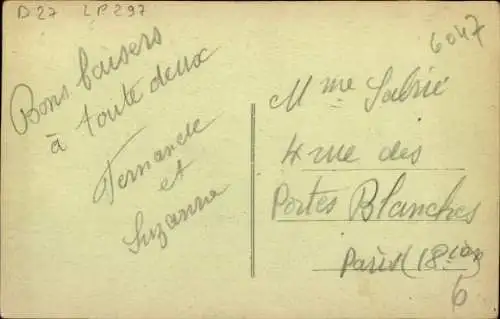 D27 LP297
6047
Bons baisers
à toute deux
Fernande
et
Suzanne
Mme Labrie
4 rue des
Portes Blanches
Paris (18
6